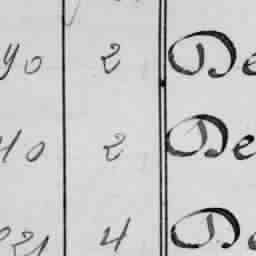 40 2 De
40 2 De
221 4 De